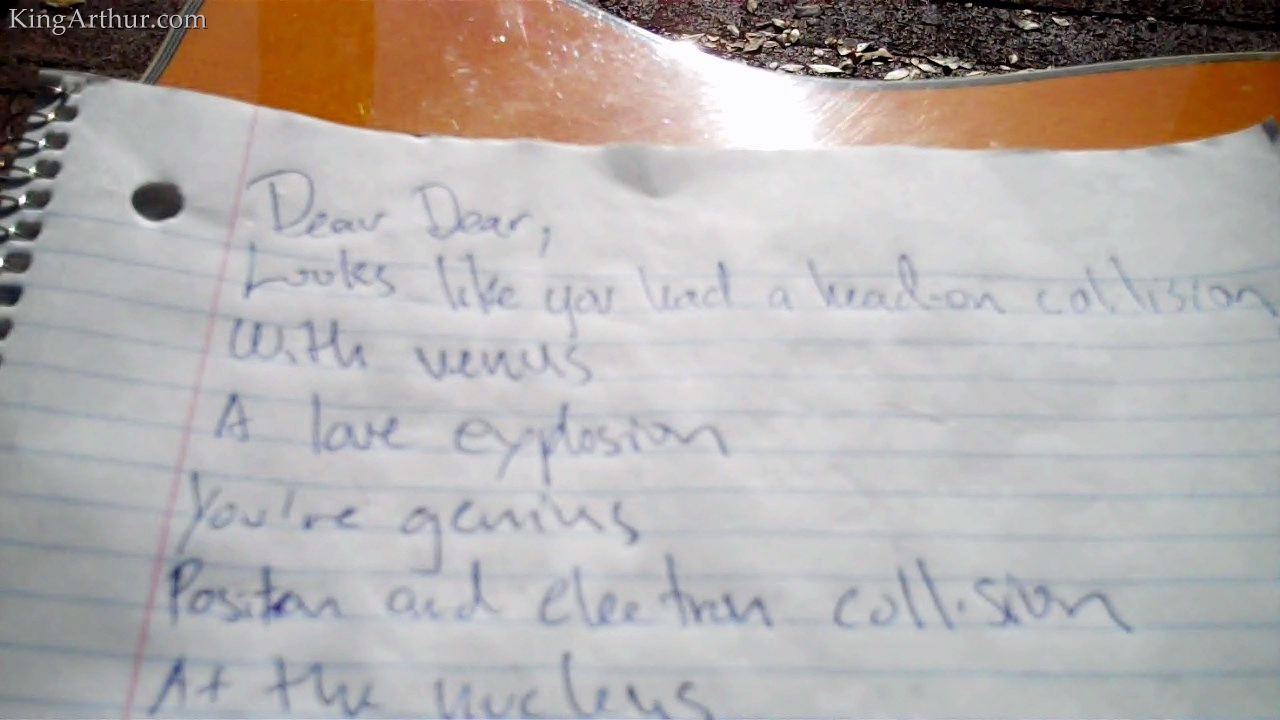 KingArthur.com
Dear Dear,
Looks like you had a head-on collision
With venus
A love explosion
You're genius
Positon and electron collision
At the nucleus